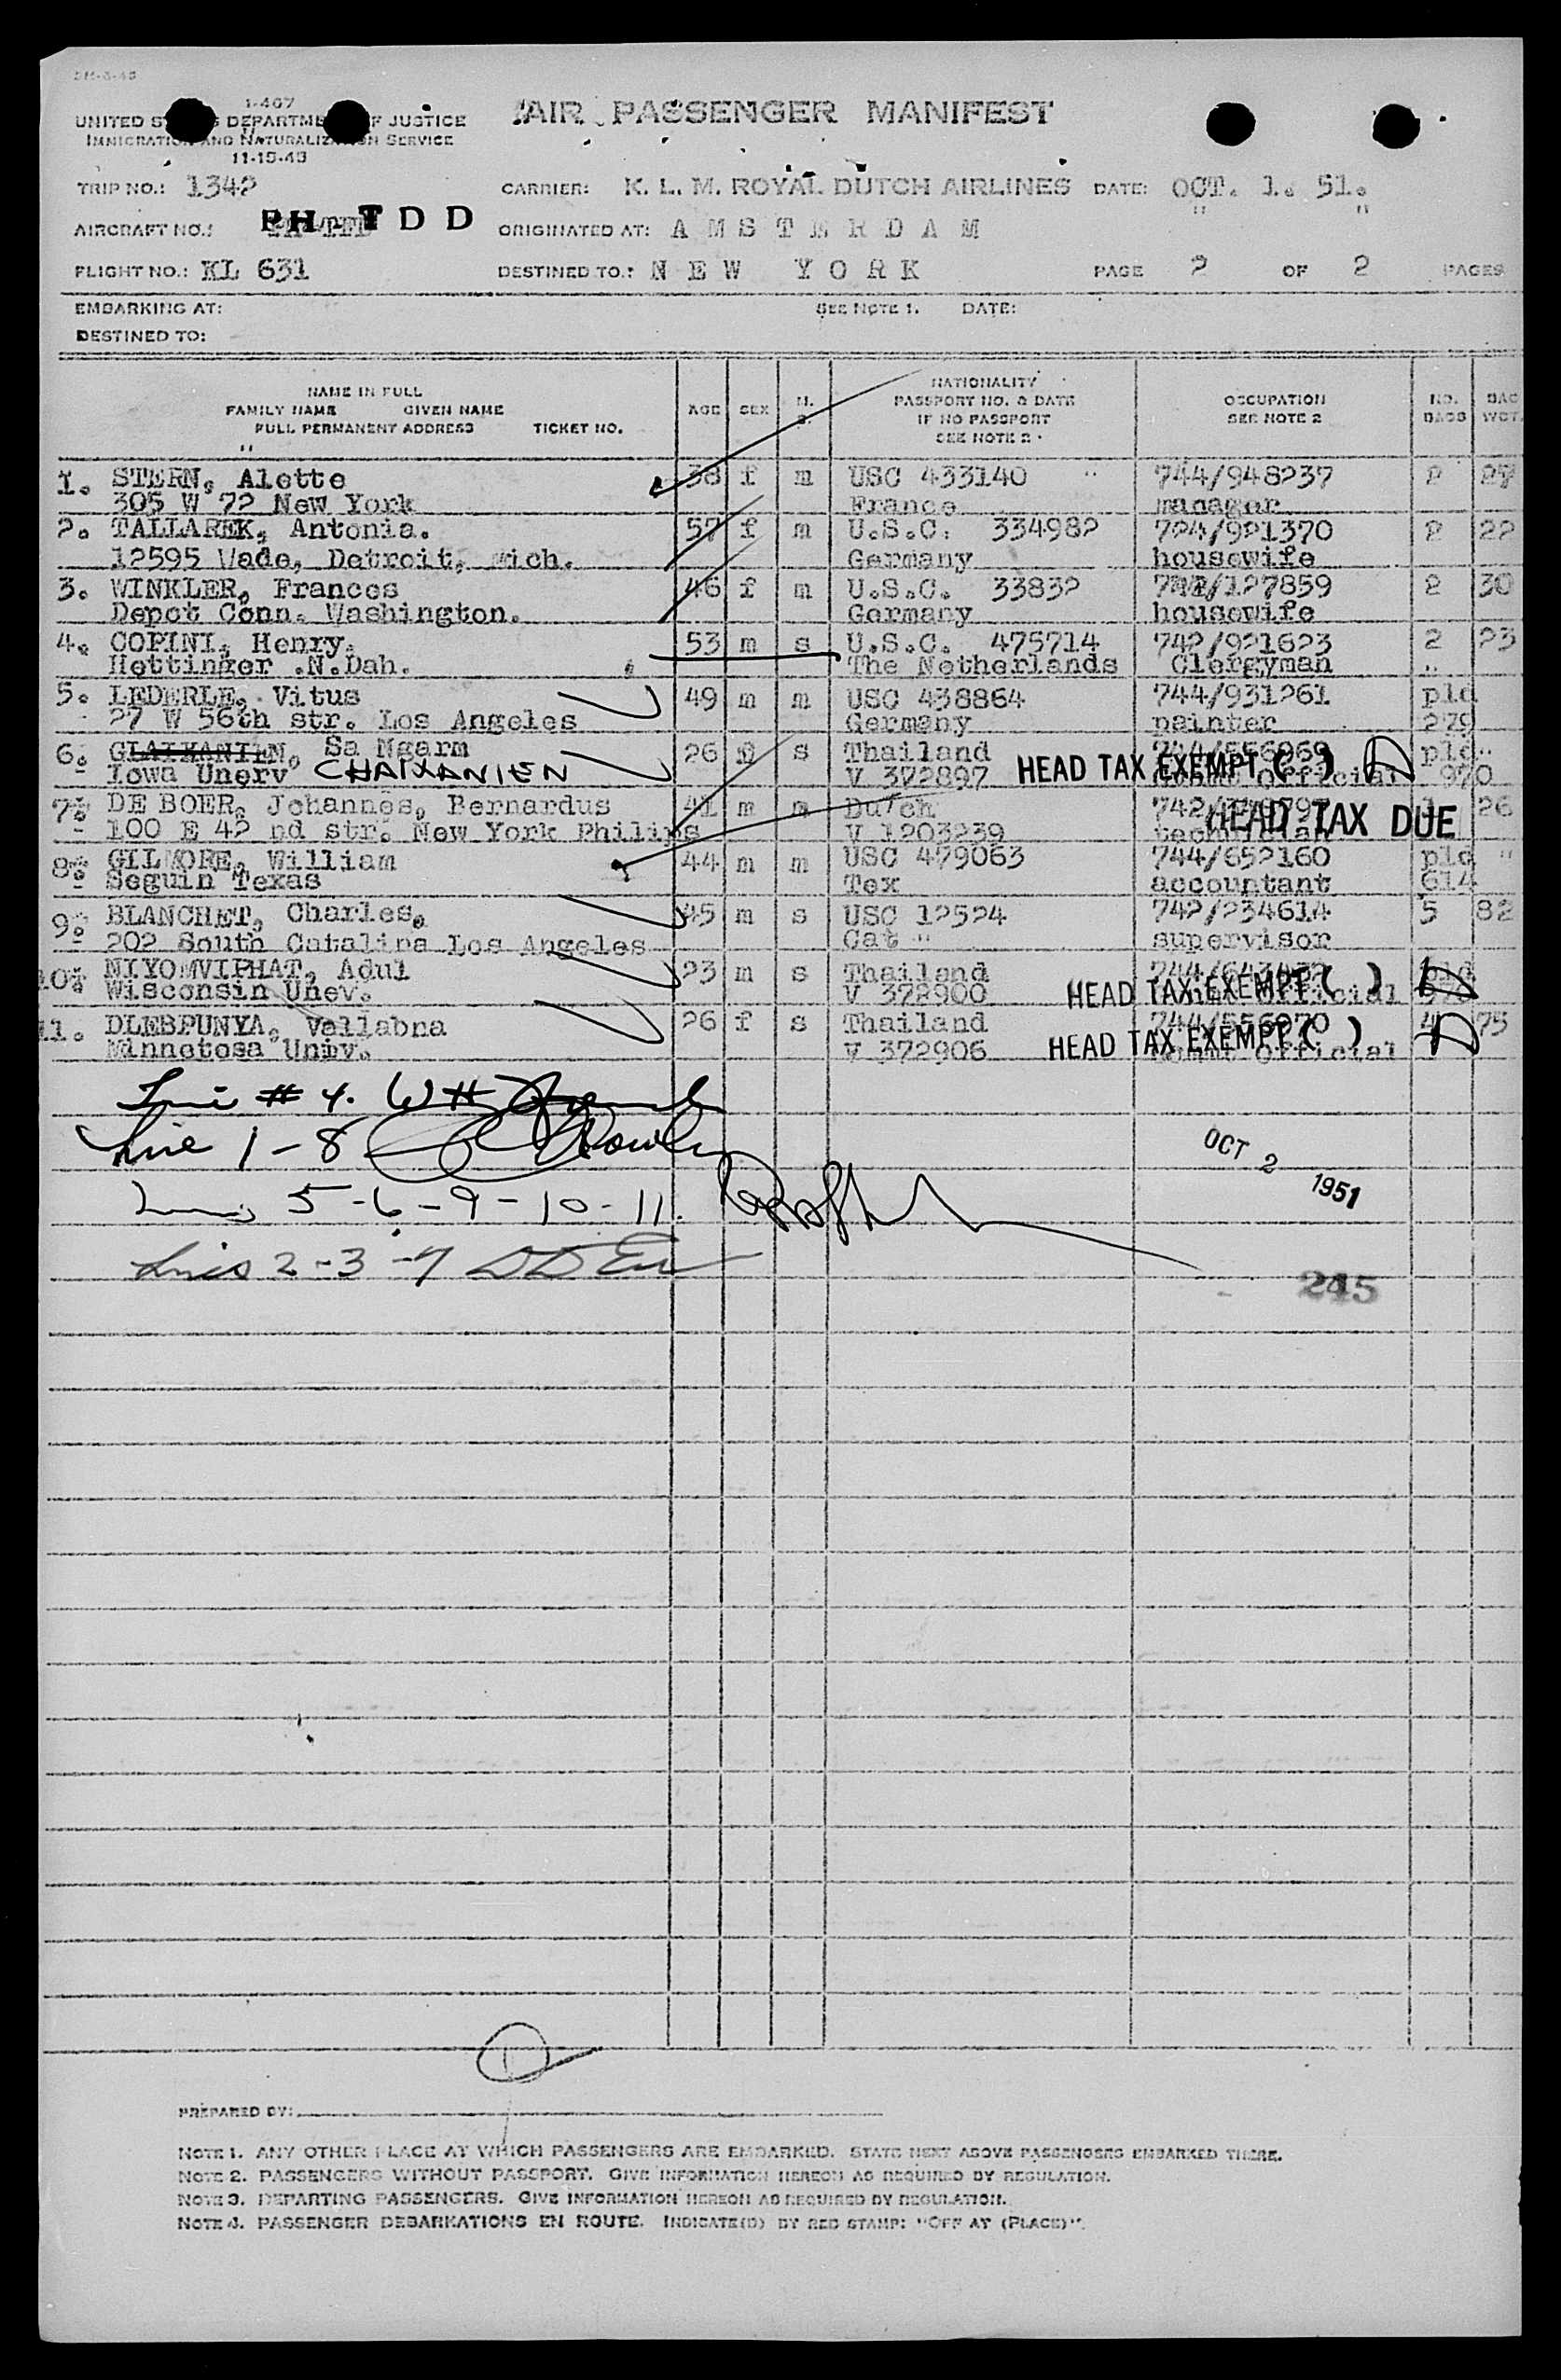 1-407
UNITED S DEPARTME F JUSTICE
IMMIGRATION AND NATURALIZATION SERVICE
11-15-43
AIR PASSENGER MANIFEST
TRIP NO.: 1342 CARRIER: K. L. M. ROYAL DUTCH AIRLINES DATE: OCT. 1. 51.
AIRCRAFT NO.: PH-TDD ORIGINATED AT: A M S T E R D A M
FLIGHT NO.: KL 631 DESTINED TO.: N E W Y O R K PAGE 2 OF 2 PAGES
EMBARKING AT: SEE NOTE 1. DATE:
DESTINED TO:
NAME IN FULL
FAMILY NAME GIVEN NAME
FULL PERMANENT ADDRESS TICKET NO.
AGE SEX M. S.
NATIONALITY
PASSPORT NO. & DATE
IF NO PASSPORT
SEE NOTE 2
OCCUPATION
SEE NOTE 2
NO. BAGS
BAG WGT.
1. STERN, Alette 38 f m USC 433140 " 744/948237 2 27
305 W 72 New York France manager
2. TALLAREK, Antonia. 57 f m U.S.C. 334982 724/921370 2 22
12595 Wade, Detroit, Mich. Germany housewife
3. WINKLER, Frances 46 f m U.S.C. 33832 /127859 2 30
Depot Conn. Washington. Germany housewife
4. COPINI, Henry. 53 m s U.S.C. 475714 742/921623 2 23
Hettinger .N.Dah. The Netherlands Clergyman "
5. LEDERLE, Vitus 49 m m USC 438864 744/931261 pld
27 W 56th str. Los Angeles Germany painter 279
6. Sa Ngarm 26 s Thailand 744/556969 pld "
Iowa Unerv CHAIXANIEN V 372897 HEAD TAX EXEMPT ( ) official 970
7. DE BOER, Johannes, Bernardus 41 m m Dutch 742/ 26
100 E 42 nd str. New York Philips V 1203239 technician HEAD TAX DUE
8. GILMORE, William 44 m m USC 479063 744/652160 pld "
Seguin Texas Tex accountant 614
9. BLANCHET, Charles, 45 m s USC 12524 742/234614 5 82
202 South Catalina Los Angeles Cat " supervisor
10. NIYOMVIPHAT, Adul 23 m s Thailand pld
Wisconsin Unev. V 372900 HEAD TAX EXEMPT ( ) official
11. DLEBPUNYA, Vallabna 26 f s Thailand 744/556970 4 75
Minnetosa Univ. V 372906 HEAD TAX EXEMPT ( ) official
Line # 4. WH
Line 1-8
OCT 2 1951
Lines 5-6-9-10-11.
Lines 2-3-7
245
PREPARED BY:
NOTE 1. ANY OTHER PLACE AT WHICH PASSENGERS ARE EMBARKED. STATE NEXT ABOVE PASSENGERS EMBARKED THERE.
NOTE 2. PASSENGERS WITHOUT PASSPORT. GIVE INFORMATION HEREON AS REQUIRED BY REGULATION.
NOTE 3. DEPARTING PASSENGERS. GIVE INFORMATION HEREON AS REQUIRED BY REGULATION.
NOTE 4. PASSENGER DEBARKATIONS EN ROUTE. INDICATE(D) BY RED STAMP: "OFF AT (PLACE)".